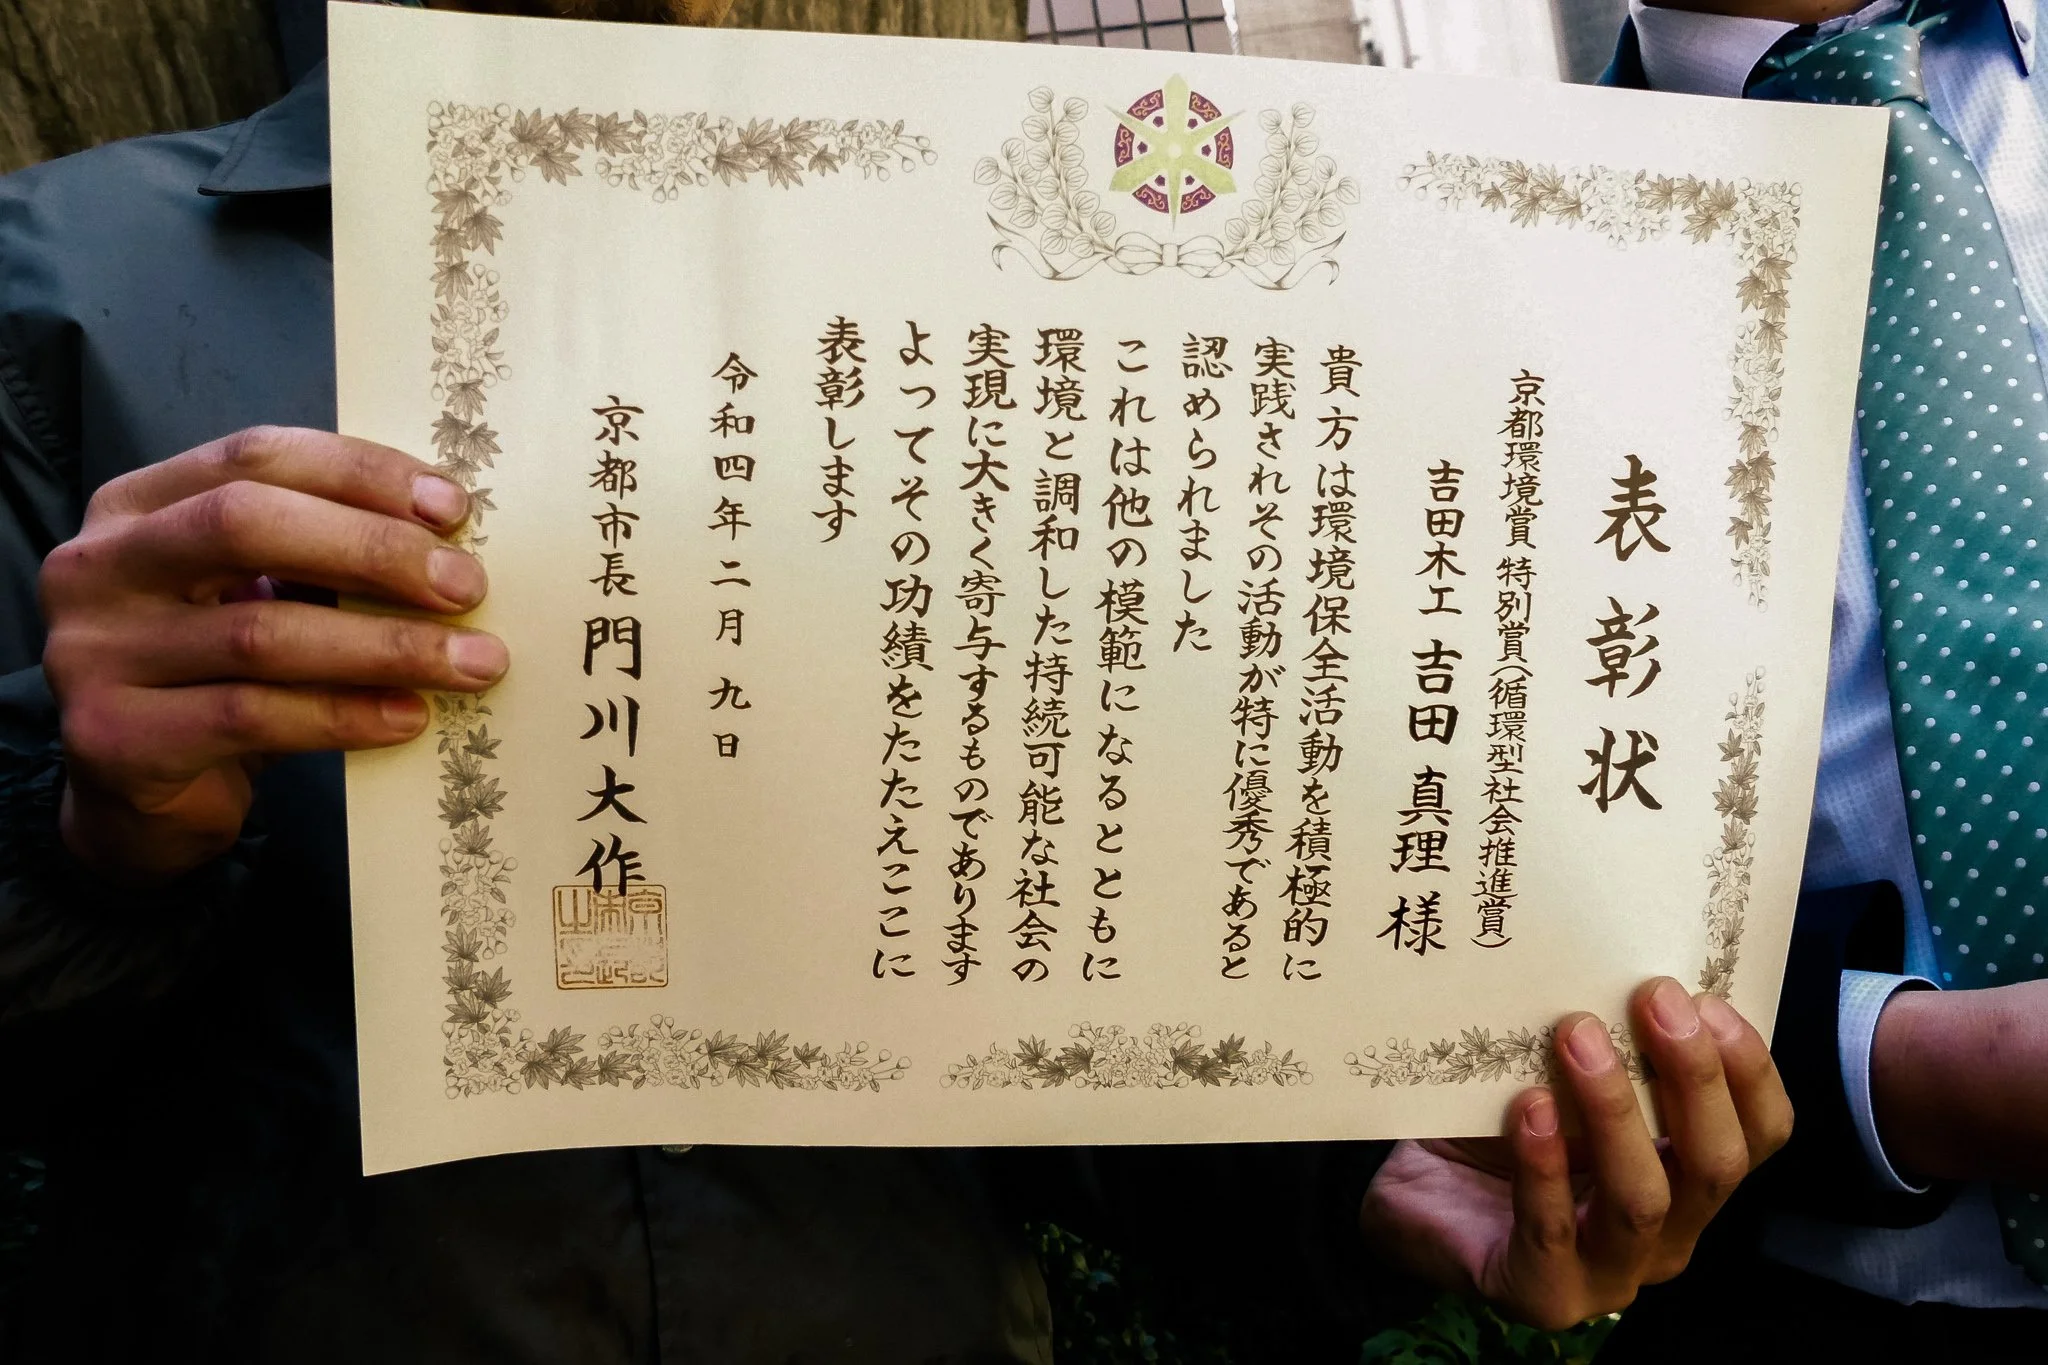 表彰状
京都環境賞 特別賞（循環型社会推進賞）
吉田木工 吉田 真理 様
貴方は環境保全活動を積極的に
実践されその活動が特に優秀であると
認められました
これは他の模範になるとともに
環境と調和した持続可能な社会の
実現に大きく寄与するものであります
よってその功績をたたえここに
表彰します
令和四年二月九日
京都市長 門川大作
京都市長之印